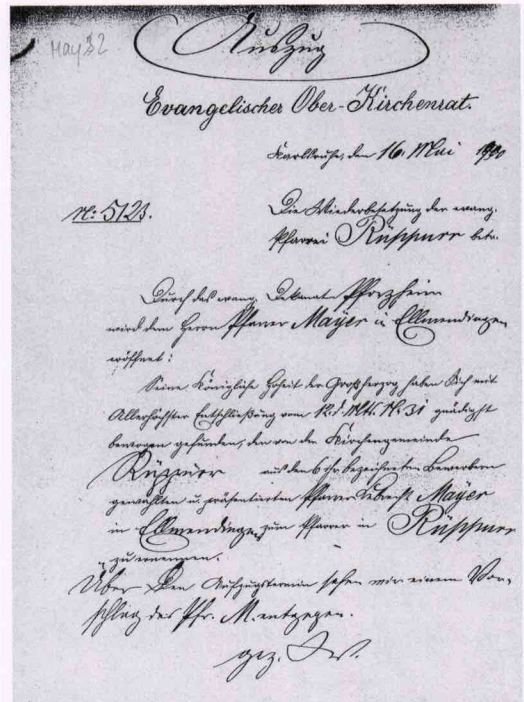 May 32
Auszug
Evangelischer Ober-Kirchenrat.
Karlsruhe, den 16. Mai 1900
№: 5123.
Die Wiederbesetzung der evang.
Pfarrei Rüppurr betr.
Durch das evang. Dekanat Pforzheim
wird dem Herrn Pfarrer Mayer in Ellmendingen
eröffnet:
Seine Königliche Hoheit der Großherzog haben Sich mit
Allerhöchster Entschließung vom 12. d. Mts. N. 31 gnädigst
bewogen gefunden, den von der Kirchengemeinde
Rüppurr aus den 6 ihr bezeichneten Bewerbern
gewählten u. präsentierten Pfarrer Mayer
in Ellmendingen zum Pfarrer in Rüppurr
zu ernennen.
Über den Aufzugstermin sehen wir einem Vor-
schlag des Pfr. M. entgegen.
gez.